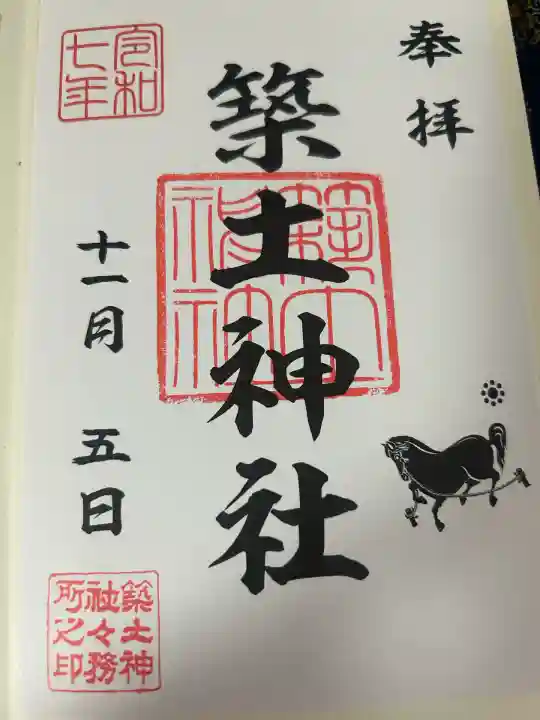 奉拝
築土神社
築土神社
令和
七年
十一月 五日
築土神
社々務
所之印